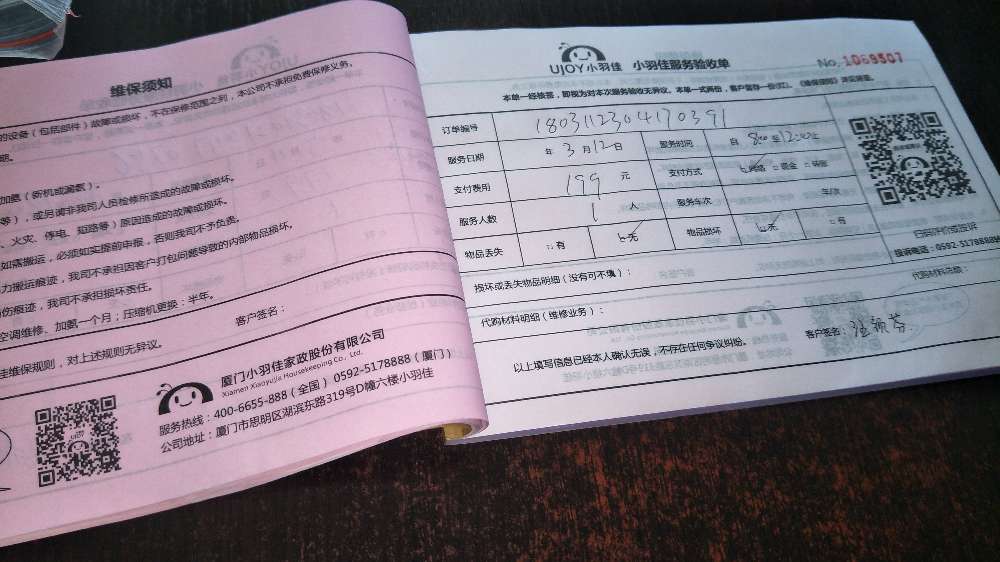 维保须知
的设备（包括部件）故障或损坏，不在保修范围之列，本公司不承担免费保修义务。
期。
加氨（新机或漏氨）。
等），或另请非我司人员检修所造成的故障或损坏。
、火灾、停电、短路等）原因造成的故障或损坏。
如需搬运，必须如实提前申报，否则我司不予负责。
力搬运痕迹，我司不承担因客户打包问题导致的内部物品损坏。
伤痕迹，我司不承担损坏责任。
空调维修、加氨一个月；压缩机更换：半年。
客户签名：
维保规则，对上述规则无异议。
厦门小羽佳家政股份有限公司
Xiamen Xiaoyujia Housekeeping Co., Ltd.
服务热线：400-6655-888（全国） 0592-5178888（厦门）
公司地址：厦门市思明区湖滨东路319号D幢六楼小羽佳
UJOY小羽佳 小羽佳服务验收单 No.1089507
本单一经核签，即视为对本次服务验收无异议。本单一式两份，客户留存一份(红)。
订单编号 180311230417039 1
服务日期 年 3 月 12 日 服务时间 自 8:00 至 12:00 止
支付费用 199 元 支付方式 网络 现金
服务人数 1 人 服务车次 车/次
物品丢失 有 无 物品损坏 无 有
扫码评价或投诉
投诉电话：0592-5178888转
损坏或丢失物品明细（没有可不填）：
代购材料明细（维修业务）：
代购材料总额：
以上填写信息已经本人确认无误，不存在任何争议纠纷。
客户签名：